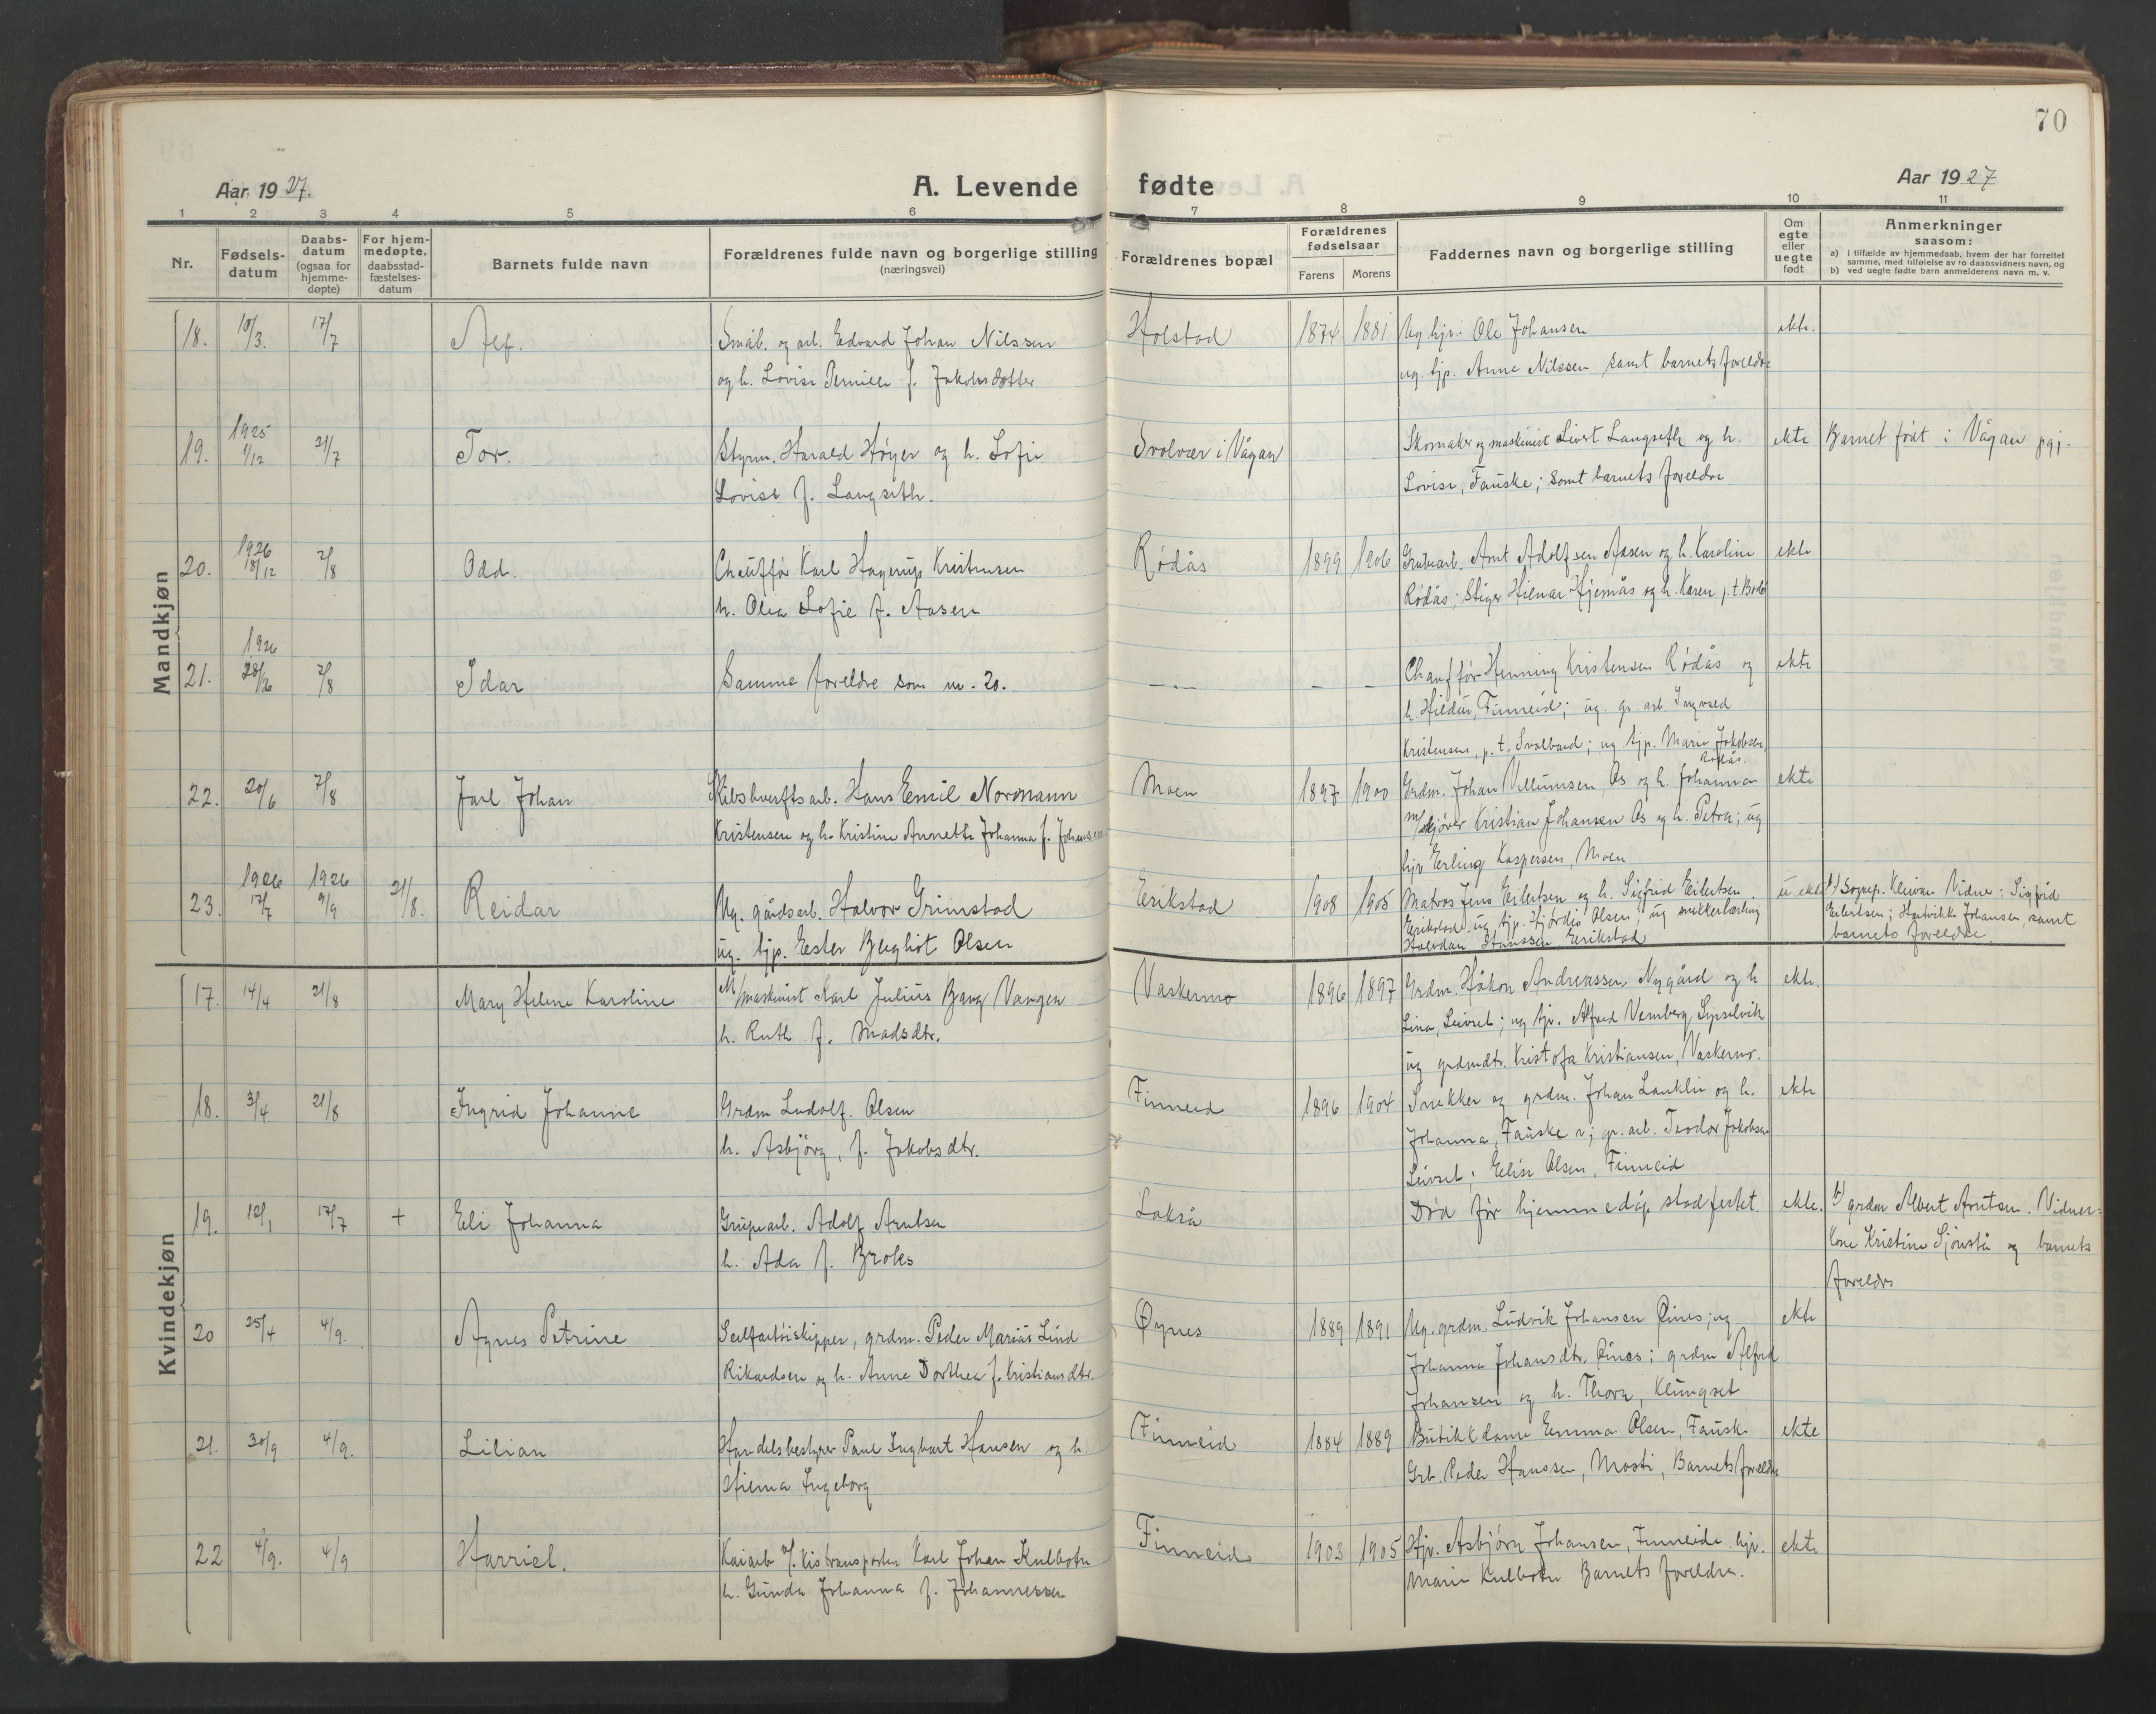 70
Aar 1927.
A. Levende fødte
Aar 1927
1 2 3 4 5 6 7 8 9 10 11
Nr.
Fødsels-
datum
Daabs-
datum
(ogsaa for
hjemme-
døpte)
For hjem-
medøpte,
daabsstad-
fæstelses-
datum
Barnets fulde navn
Forældrenes fulde navn og borgerlige stilling
(næringsvei)
Forældrenes bopæl
Forældrenes
fødselsaar
Farens Morens
Faddernes navn og borgerlige stilling
Om
egte
eller
uegte
født
Anmerkninger
saasom:
a) i tilfælde av hjemmedaab, hvem der har forrettet
samme, med tilføielse av to daabsvidners navn, og
b) ved uegte fødte barn anmelderens navn m. v.
Mandkjøn
18. 10/3. 17/7 Alf.
Småb. og arb. Edvard Johan Nilssen
og h. Lovise Pernille f. Jakobsdotter
Holstad 1874 1881
Ug hjv. Ole Johansen
ug. tjp. Anne Nilssen samt barnets foreldre
ekte.
19. 1925
1/12 21/7 Tor.
Styrm. Harald Høyer og h. Sofie
Lovise f. Langseth.
Svolvær i Vågan
Skomaker og maskinist Sivert Langseth og h.
Lovise, Fauske; samt barnets foreldre
ekte Barnet født i Vågan pgj.
20. 1926
18/12 2/8 Odd.
Chauffør Karl Hagerup Kristensen
h. Olea Sofie f. Aasen
Rødås 1899 1906
Grubearb. Arnt Adolfsen Aasen og h. Karoline
Rødås; Stiger Hilmar Hjemås og h. Karen p.t. Bodø
ekte
21. 1926
28/26 2/8 Idar
Samme foreldre som nr. 20.
— " — – –
Chauffør Henning Kristensen Rødås og
h. Hildur, Finneid; ug. gr. arb. Ingvald
Kristensen, p. t. Svalbard; ug tjp. Marie Jakobsen,
Rødås.
ekte
22. 20/6 7/8 Jarl Johan
Skibshverftsarb. Hans Emil Normann
Kristensen og h. Kristine Annette Johanna f. Johansen
Moen 1897 1900
Grdm. Johan Villumsen, Os og h. Johanna
m/skjører Kristian Johansen Os og h. Petra; ug
hjv Erling Kaspersen, Moen
ekte
23. 1926
17/7 1926
9/9 21/8. Reidar
Ug. gårdsarb. Halvor Grimstad
ug. tjp. Ester Bergliot Olsen
Erikstad 1908 1905
Matros Jens Eilertsen og h. Sigfrid Eilertsen
Erikstad ug. tjp. Hjørdis Olsen; ug snekkerlærling
Halvdan Hanssen Erikstad
u ekte
b) Sognep. Kleivan Vidner: Sigfrid
Eilertsen; Hartvikke Johansen, samt
barnets foreldre.
Kvindekjøn
17. 14/4 21/8 Mary Helene Karoline
M/maskinist Karl Julius Bang Vangen
h. Ruth f. Madsdtr.
Vaskermo 1896 1897
Grdm. Håkon Andreassen Nygård og h
Lina, Leivset; ug tjv. Alfred Vemberg,
ug grdmdtr. Kristofa Kristiansen, Vaskermo.
ekte.
18. 3/4 21/8 Ingrid Johanne
Grdm Ludolf. Olsen
h. Asbjørg, f. Jakobsdtr.
Finneid 1896 1904
Snekker og grdm. Johan Lanklin og h.
Johanna, Fauske n; gr. arb. Teodor Jakobsen
Leivset; Elise Olsen, Finneid
ekte
19. 12/1 17/7 + Eli Johanna
Grupearb. Adolf Arntsen
h. Ada f. Broks
Lakså
Død før hjemmedåp stadfestet.
ekte.
b) grdm Albert Arntsen. Vidner:
Kone Kristine Sjønstå og barnets
foreldre
20 25/4 4/9. Agnes Petrine
Seilfartøiskipper, grdm. Peder Marius Lind
Rikardsen og h. Anne Dorthea f. Kristiansdtr.
Øynes 1889 1891
Ug. grdm. Ludvik Johansen Øines; ug
Johanna Johansdtr. Øines; grdm Alfred
Johansen og h. Thora, Klungset
ekte
21. 30/9 4/9. Lilian
Handelsbestyrer Paul Ingbart Hansen og h.
Hilma Ingeborg
Finneid 1884 1889
Butikkdame Emma Olsen Fausk.
Grb. Peder Hanssen, Mosti, Barnets foreldre
ekte
22 4/9. 4/9 Harriet.
Kaiarb v/. kistransporten Karl Johan Kulbotn
h. Gunda Johanna f. Johannessen
Finneid 1903 1905
Hjv. Asbjørn Johansen, Finneide hjv.
Marie Kulbotn Barnets foreldre.
ekte